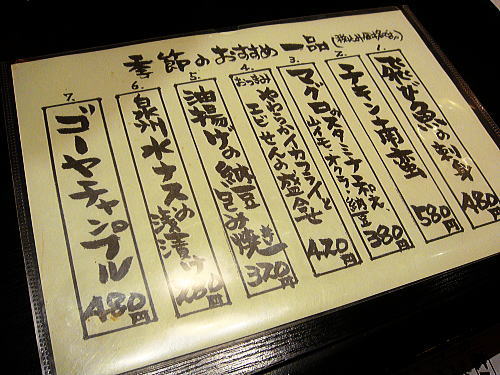 季節のおすすめ一品
1. 飛び魚の刺身 480円
2. チキン南蛮 580円
3. マグロのスタミナ和え 山イモ、オクラ、納豆 380円
4. おつまみ やわらかイカフライとエビせんの盛合せ 420円
5. 油揚げの納豆包み焼き 370円
6. 泉州水ナスの浅漬け 480円
7. ゴーヤチャンプル 480円